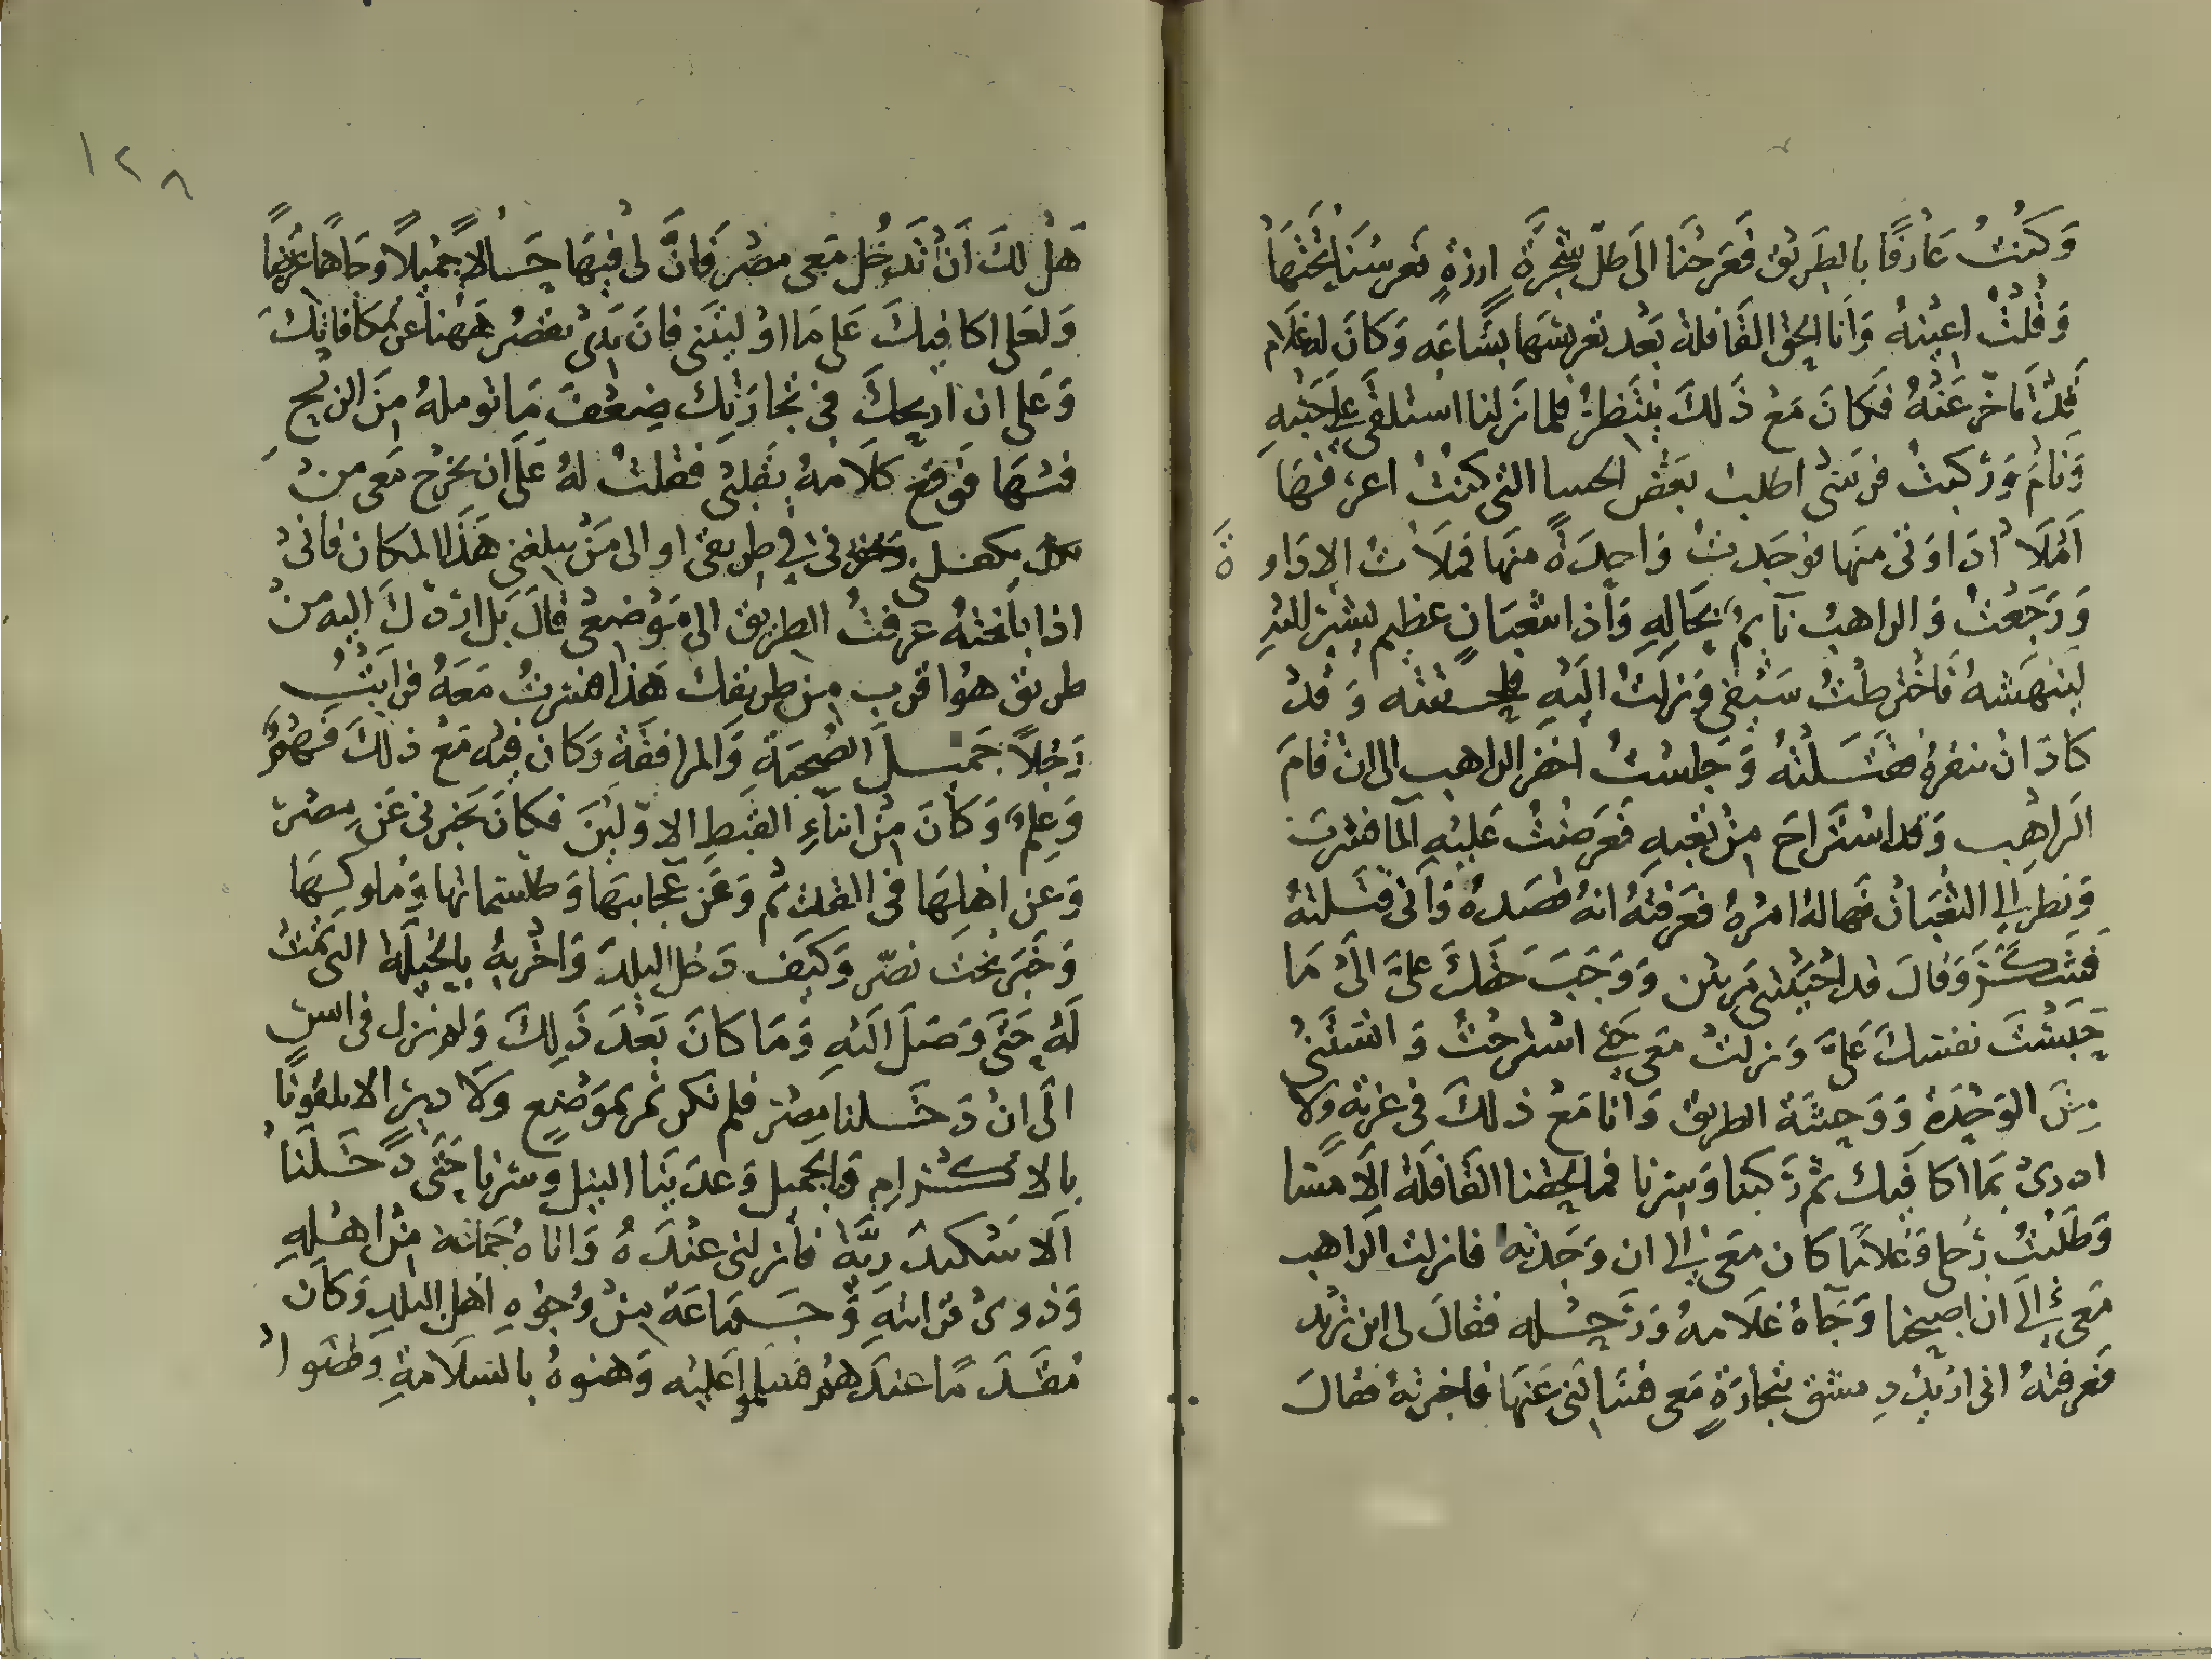 وَكُنْتُ عَارفًا بالطَريق فَعَرجْنَا الَى ظلّ شجَرَةٍ ارزةٍ نعرسُنَا تحْتَهَا
وَقُلْتُ اعِيْنهُ وَأنا الحق القَافلة بَعْد تعريسهَا بسَّاعَه وَكَانَ له غلام
قدْ تأخّر عَنْهُ فكَانَ مَعْ ذَلكَ ينتَظرُ فلما نَزلنا اسْتلقَى على جَنْبِهِ
وَنَامَ وَرَكبتُ فرسَى اطلب بَعْض الحسا التى كنْتُ اعرفهَا
أمْلَا ادَاوَتى منهَا فوَجَدتُ وَاحِدَةً منهَا فملَات الادَاو ةَ
وَرَجَعْتُ وَالراهبُ نآيمٌ بحَالِهِ وَأذا بثعبَانٍ عظِيم اليْهِ
لينهَشهُ فَاخْترطْتُ سَيْفى وَنزلتُ اليْهِ وَقدْ
كادَ ان ينقرهُ فقتَلتهُ وَجلستُ احفر الراهب الى انْ قامَ
الراهِب وَقد استَرَاحَ مِنْ تعْبهِ فَعَرضْتُ عَليْهِ المآ فشربَ
وَنظر الي الثعْبَانْ فهَالهُ امْرهُ فعَرفتهُ انهُ قصَدهُ وَأنى قتَلتهُ
فتشكَّرَ وَقالَ قد احْيَيْتنى مَرتين وَوَجَبَ حَقكَ علىَّ الىْ مَا
حَبَسْتَ نفسَكَ عَلىَّ وَنزلتُ مَعى حَتى استرحْتُ وَانستَنىْ
مِنَ الوَحْدَة وَوَحِشَة الطريق وَانا مَعْ ذلكَ فى غربَةٍ وَلا
ادرىْ بمَا اكافيكَ ثم رَكبنا وَسِرنا فما لحقنا القَافلَة الَّا مَسَا
وَطَلبْتُ رَحلى وَغلامًا كان مَعى الي ان وَجَدْته فانزلت الراهب
مَعى الَي ان اصبحنا وَجَآهُ غلَامهُ وَرَحْله فقالَ لى اين تريد
فَعَرفتهُ انى اريدُ دِمشق بتجارَةٍ مَعى فسَالنى عَنهَا فاخبرتهُ فقالَ
١٢٨
هَلْ لكَ أنْ تَدخُل مَعى مصْرَ فَانَّ لى فيهَا حَالاً جْميلاً وَجَاهًا عريضًا
وَلعَلى اكافيكَ عَلى مَا اوْليتَنى فانَ يَدى تقصُرُ هَهنا عَن مُكافاتِكَ
وَعَلى ان اربحكَ فى تجارَتِكَ ضِعْفَ مَا توملهُ مِنَ الربح
فيهَا فوقعَ كلَامهُ بقلبى فقلتُ لهُ عَلَى ان يخرُج مَعى منْ
فى طريقى او الى مَنْ يبلغنى هَذَا المكان فانىْ
اذا بلغتهُ عرفتُ الطريق الى مَوْضعى قالَ بَل اردّكَ اليه منْ
طريق هوَ اقرب مِن طريقك هَذا فسرتُ مَعَهُ فرأيْتُ
رَجُلاً جَميلَ الصُّحبَةِ وَالمرافقَةِ وَكانَ فيْه مَعْ ذلكَ فهْمٌ
وَعِلمٌ وَكانَ مِنْ ابنآءِ القبْطِ الاوّليْنَ فكانَ يخبرنى عَنِ مصْرَ
وَعن اهلِهَا فى القدَيْم وَعَن عَجَايبهَا وَطلسْماتها وَملوكِهَا
وَخَبَر بخت نصّر وَكيَف دَخل البلدَ وَاخْربهُ بالحْيلَة التى تمّتْ
لهُ حَتىَ وَصَل اليْهِ وَمَا كانَ بَعْدَ ذَلِكَ وَلم نزل فى انس
الَى انْ دَخَلنا مِصْر فلم نكن نمر بموَضْعٍ وَلَا ديرٍ الا تلقوْنَا
بالاكرامِ وَالجميل وَعدّيْنَا النيل وَسرنا حَتَى دَخَلنَا
الَاسْكندَريَّة فأنزلنى عنْدَهُ وَاتاهُ جَماعَة مِنْ اهْلهِ
وَذوىْ قرابَتهِ وَجَمَاعَة مِنْ وُجُوْهِ اهل البلدِ وَكانَ
مُقَدّمًا عندَهُمْ فسَلموا عَليْه وَهنوهُ بالسَلَامةِ وَظنوا